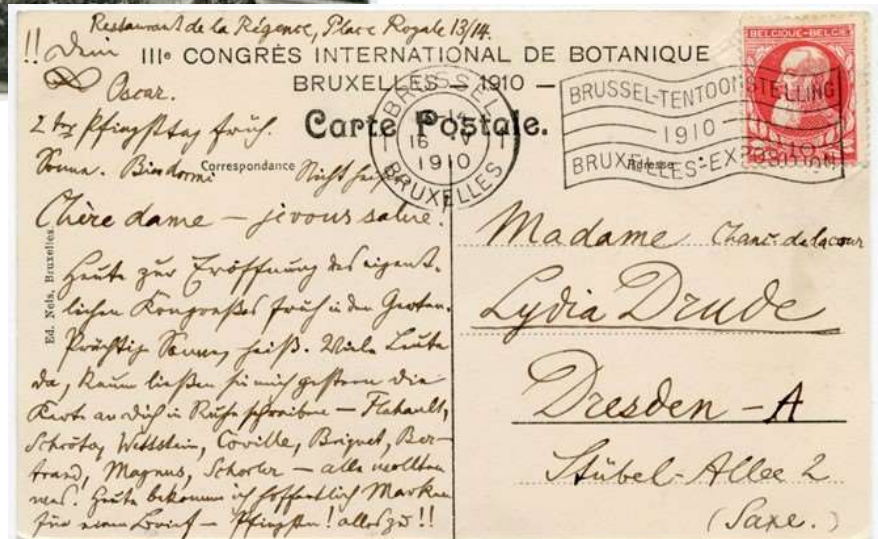 Restaurant de la Régence, Place Royale 13/14.
!! Dein
IIIe CONGRÈS INTERNATIONAL DE BOTANIQUE
BRUXELLES — 1910 —
Oscar.
Carte Postale.
BRUSSEL
16 V
1910
BRUXELLES
BRUSSEL-TENTOONSTELLING
1910
BRUXELLES-EXPOSITION
BELGIQUE-BELGIË
10
2ter Pfingsttag früh.
Sonne.
Correspondance
Nicht heiß
Adresse
Chère dame — je vous salue.
Heute zur Eröffnung des eigent-
lichen Kongreßes früh in den Garten.
Prächtig Sonne, heiß. Viele Leute
da, kaum ließen sie mich gestern die
Karte an Dich in Ruhe schreiben — Flahault,
Schröter, Wettstein, Coville, Briquet, Ber-
trand, Magnus, Schorler — alle wollten
was. Heute bekomme ich hoffentlich Marken
für einen Brief — Pfingsten! alles zu!!
Ed. Nels, Bruxelles.
Madame
Lydia Drude
Dresden - A
Stübel-Allee 2
(Saxe.)